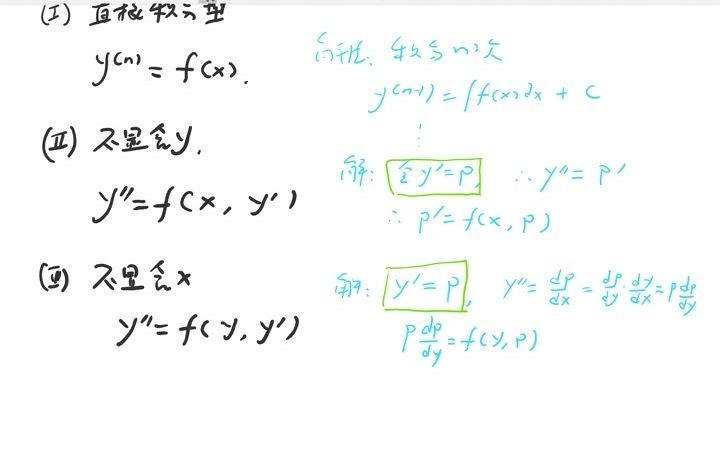 (I) 直接积分型
y⁽ⁿ⁾ = f(x).
解法: 积分n次
y⁽ⁿ⁻¹⁾ = ∫f(x)dx + C
⋮
(II) 不显含y.
y″ = f(x, y′)
解: 令 y′ = p, ∴ y″ = p′
∴ p′ = f(x, p)
(III) 不显含x
y″ = f(y, y′)
解: y′ = p, y″ = dp/dx = dp/dy · dy/dx = p dp/dy
p dp/dy = f(y, p)